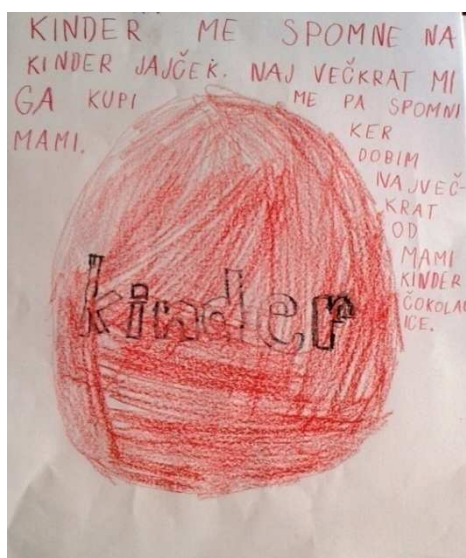 KINDER ME SPOMNE NA
KINDER JAJČEK. NAJ VEČKRAT MI
GA KUPI
MAMI.
ME PA SPOMNI
KER
DOBIM
NAJVEČ-
KRAT
OD
MAMI
KINDER
ČOKOLAD
ICE.
kinder